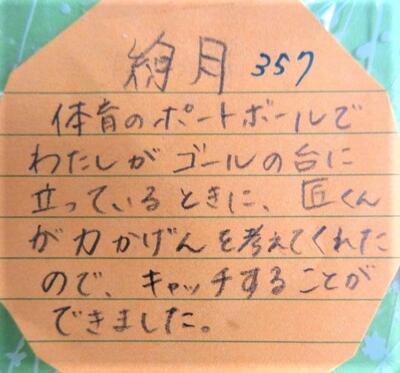 絢月 357
体育のポートボールで
わたしがゴールの台に
立っているときに、匠くん
が力かげんを考えてくれた
ので、キャッチすることが
できました。